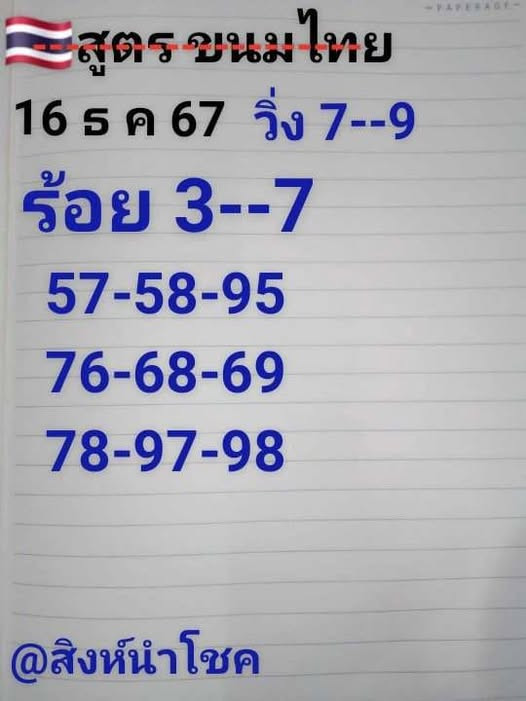 PAPERAGE
🇹🇭สูตร ขนมไทย
16 ธ ค 67 วิ่ง 7--9
ร้อย 3--7
57-58-95
76-68-69
78-97-98
@สิงห์นำโชค